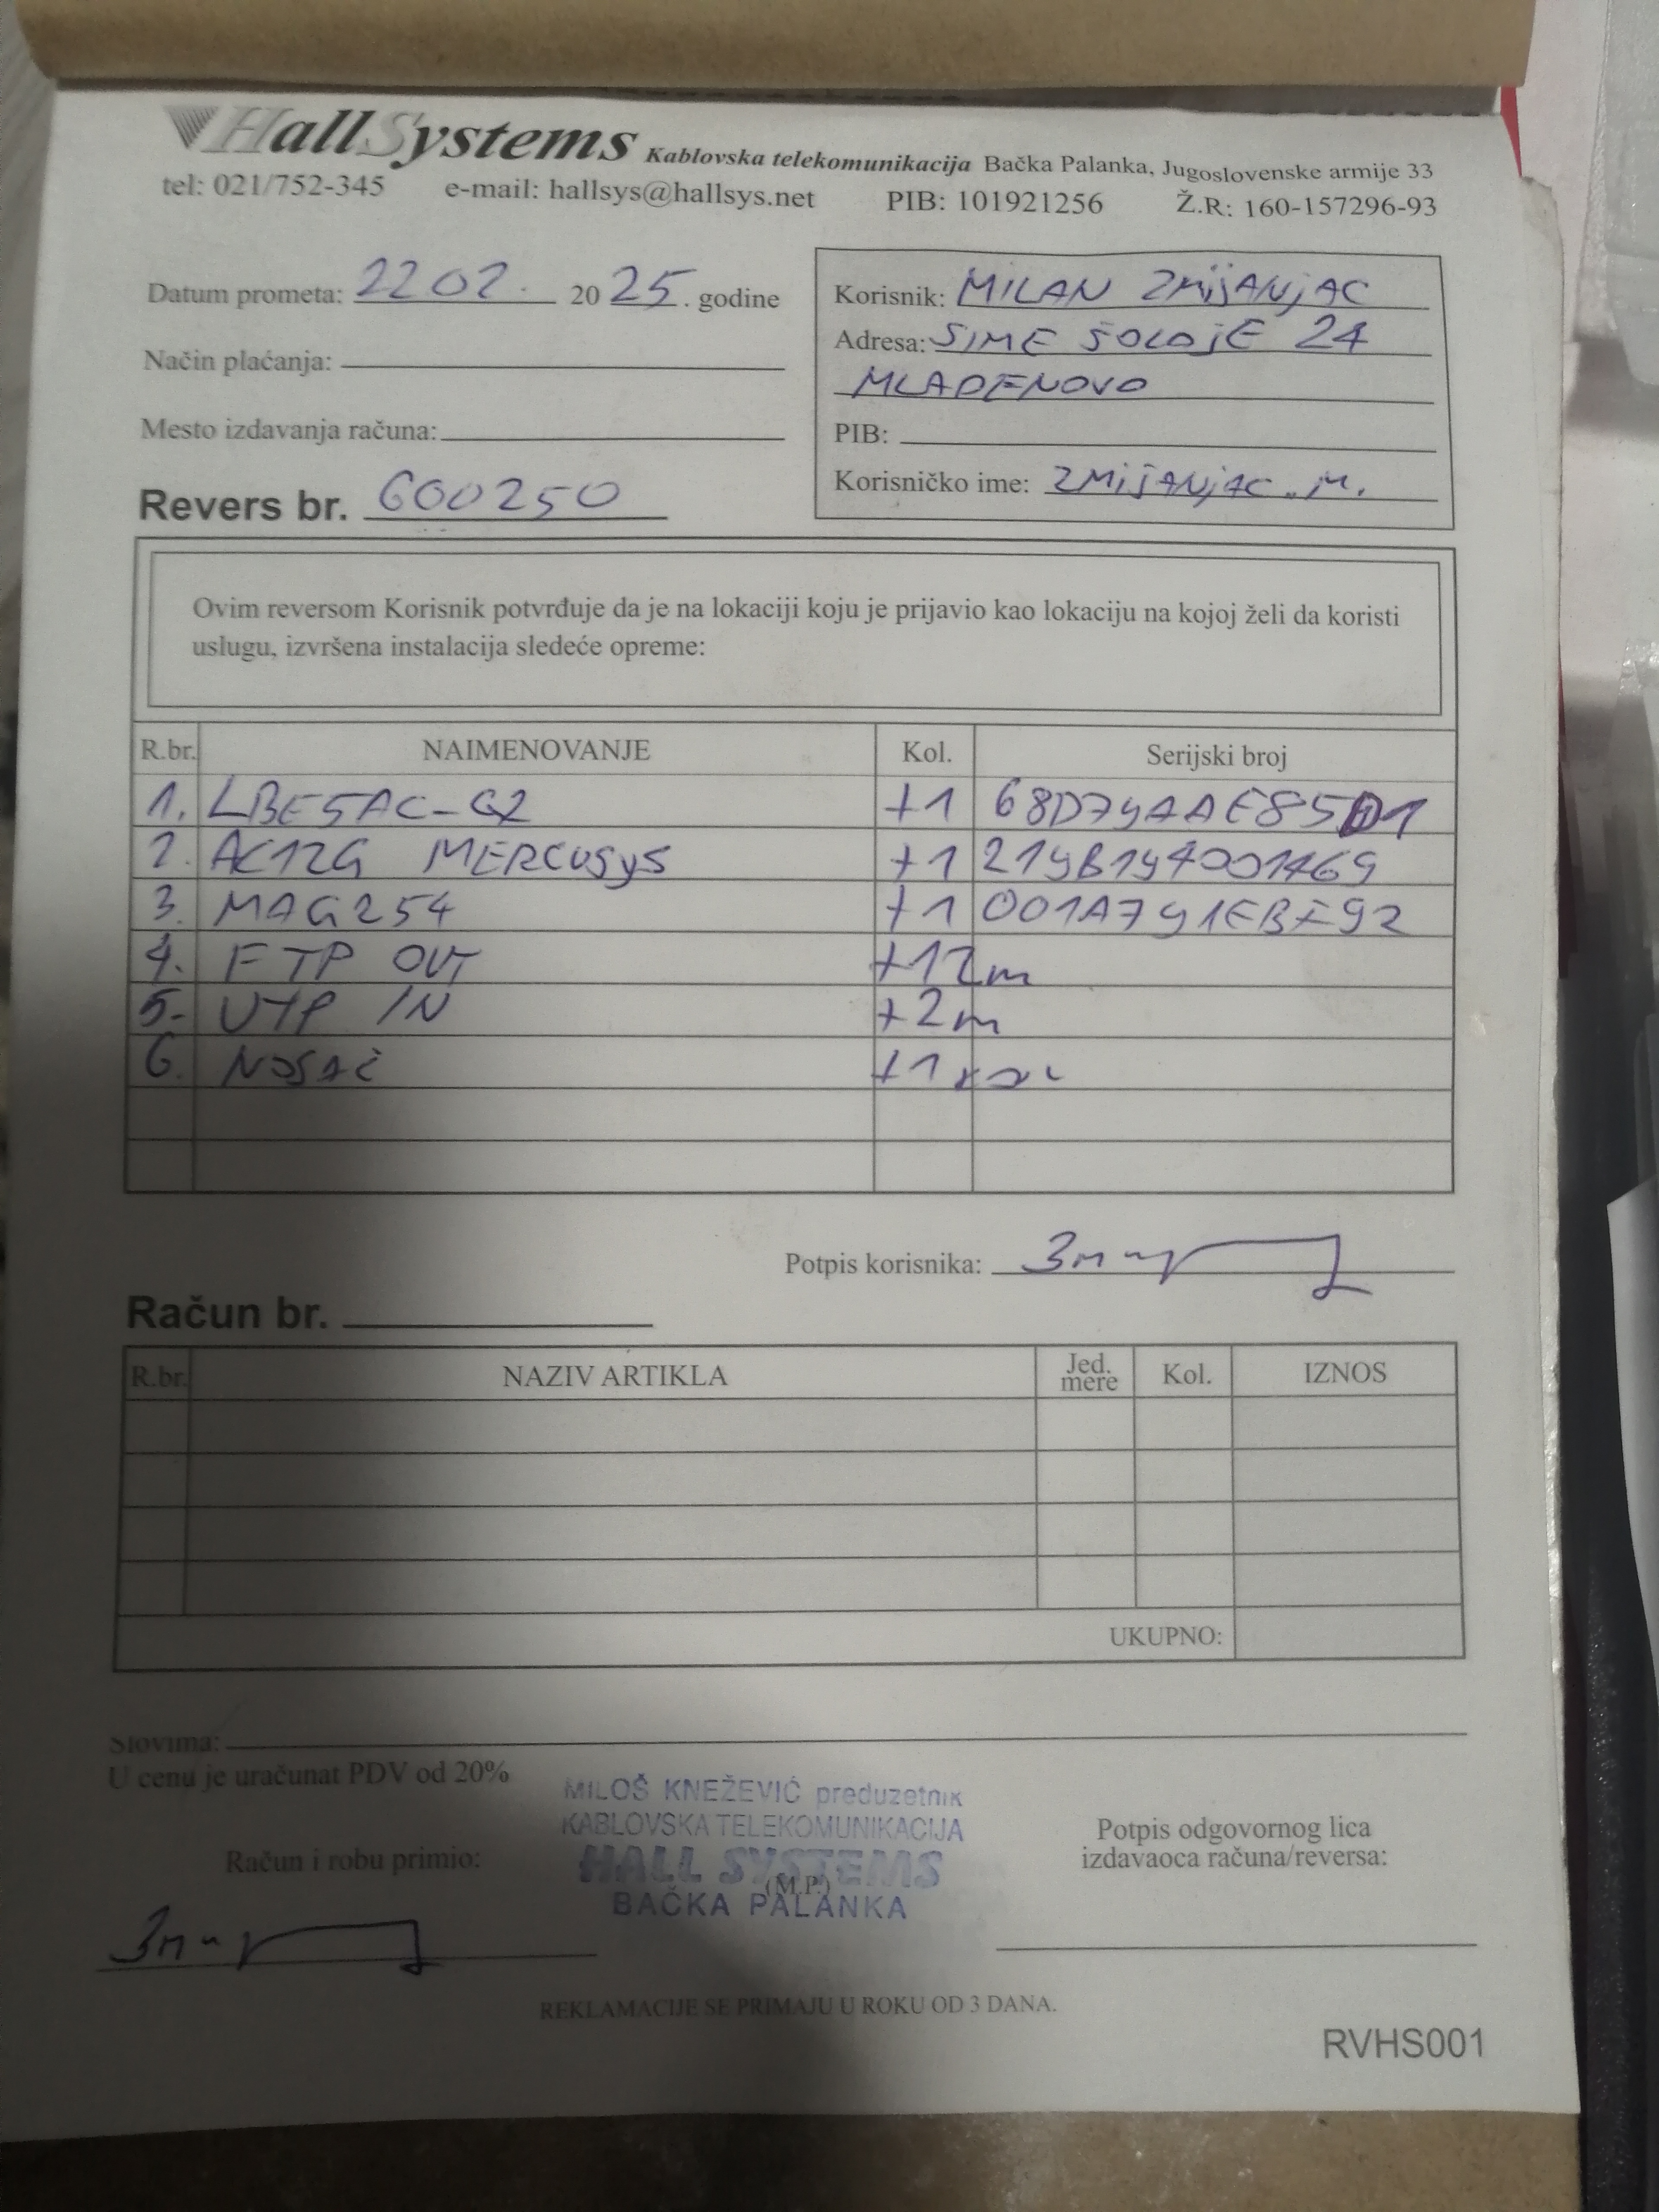 HallSystems Kablovska telekomunikacija Bačka Palanka, Jugoslovenske armije 33
tel: 021/752-345 e-mail: hallsys@hallsys.net PIB: 101921256 Ž.R: 160-157296-93
Datum prometa: 22 02. 2025. godine
Način plaćanja:
Mesto izdavanja računa:
Revers br. 600250
Korisnik: MILAN ZMijANjAC
Adresa: SIME ŠOLOjE 24
MLADENOVO
PIB:
Korisničko ime: ZMijANjAC.M.
Ovim reversom Korisnik potvrđuje da je na lokaciji koju je prijavio kao lokaciju na kojoj želi da koristi
uslugu, izvršena instalacija sledeće opreme:
R.br. NAIMENOVANJE Kol. Serijski broj
1. LBE5AC-G2 +1 68D79AAE85D1
2. AC12G MERCUSYS +1 219B194001469
3. MAG254 +1 001A791EBF92
4. FTP OUT +12m
5. UTP IN +2m
6. NOSAČ +1 KOM
Potpis korisnika:
Račun br.
R.br. NAZIV ARTIKLA Jed. mere Kol. IZNOS
UKUPNO:
Slovima:
U cenu je uračunat PDV od 20%
MILOŠ KNEŽEVIĆ preduzetnik
KABLOVSKA TELEKOMUNIKACIJA
HALL SYSTEMS
(M.P.)
BAČKA PALANKA
Račun i robu primio:
Potpis odgovornog lica
izdavaoca računa/reversa:
REKLAMACIJE SE PRIMAJU U ROKU OD 3 DANA.
RVHS001